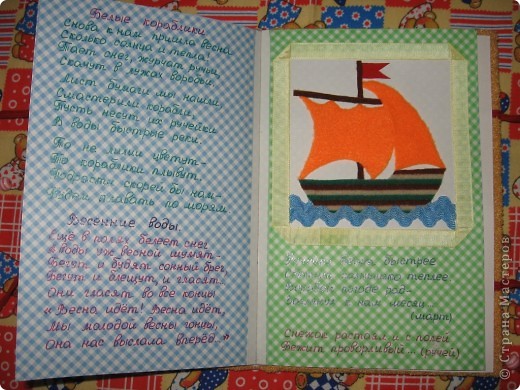 Белые кораблики
Снова к нам пришла весна
Сколько солнца и тепла!
Тает снег, журчат ручьи,
Скачут в лужах воробьи.
Лист бумаги мы нашли,
Смастерили корабли,
Пусть несёт их ручейки
В воды быстрые реки.
То не лилии цветут -
То кораблики плывут.
скорей бы нам -
Будем плавать по морям.
Весенние воды.
Ещё в полях белеет снег
А воды уж весной шумят -
Бегут и будят сонный брег
Бегут и блещут и гласят...
Они гласят во все концы
"Весна идёт! Весна идёт,
Мы молодой весны гонцы,
Она нас выслала вперёд..."
быстрее
теплее
к нам месяц
(март)
Снежок растаял и с полей
Бежит проворливый... (ручей)
© Страна Мастеров